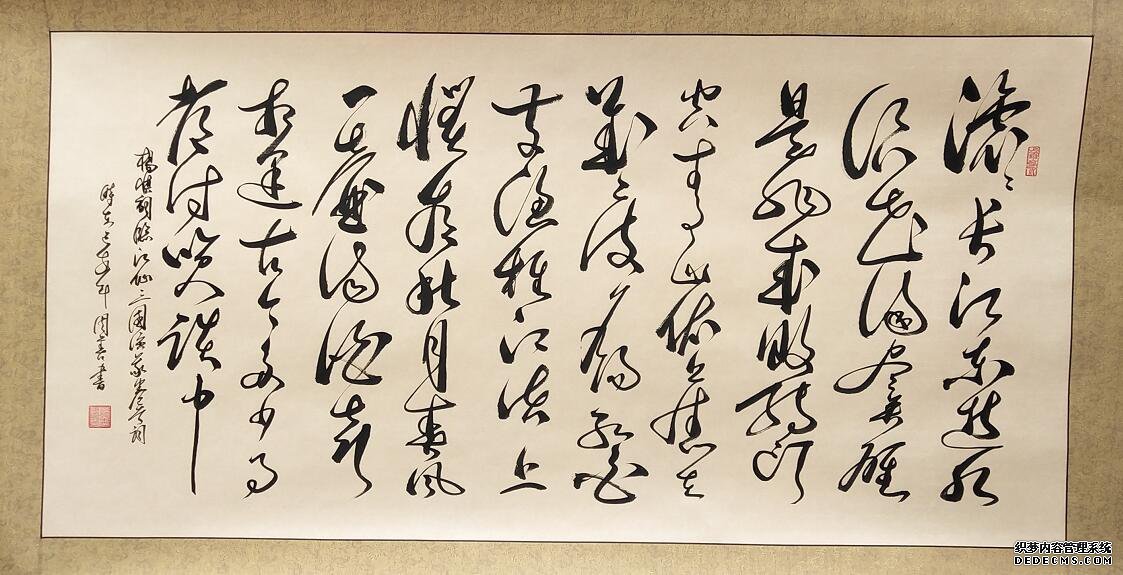 滚滚长江东逝水
浪花淘尽英雄
是非成败转头
空青山依旧在
几度夕阳红白
发渔樵江渚上
惯看秋月春风
一壶浊酒喜
相逢古今多少事
都付笑谈中
杨慎词临江仙三国演义卷首词
时在己亥年 书
织梦内容管理系统
DEDECMS.COM